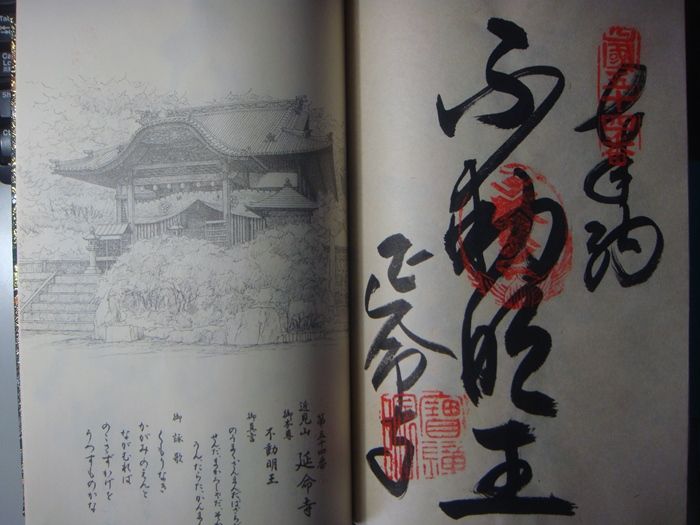 奉納
四國五十四番
不動明王
延命寺
第五十四番
近見山 延命寺
御本尊
不動明王
御真言
のうまくさんまんだばざら
せんだまかろしゃだ そわ
うんたらたかんまん
御詠歌
くもりなき
かがみのえんと
ながむれば
のこさずかげを
うつすものかな